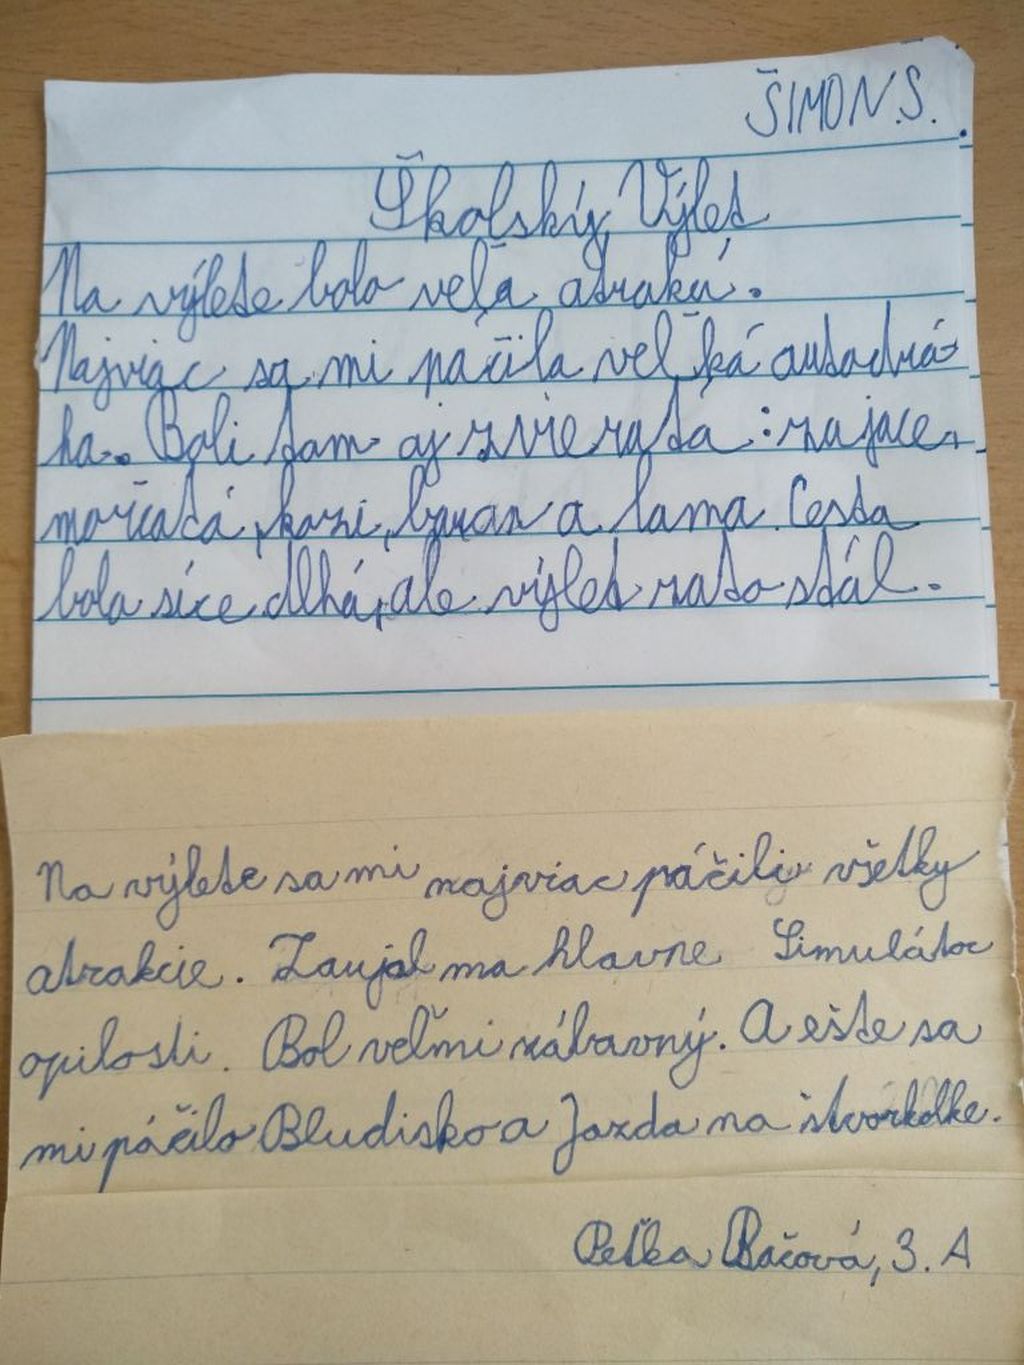 ŠIMON.S.
Školský Výlet
Na výlete bolo veľa atrakcí.
Najviac sa mi páčila veľká autodrá-
ha. Boli tam aj zvieratá: zajace,
morčatá, kozi, baran a lama. Cesta
bola síce dlhá, ale výlet zato stál.
Na výlete sa mi najviac páčili všetky
atrakcie. Zaujal ma hlavne Simulátor
opilosti. Bol veľmi zábavný. A ešte sa
mi páčilo Bludisko a Jazda na štvorkolke.
Peťka Bačová, 3. A